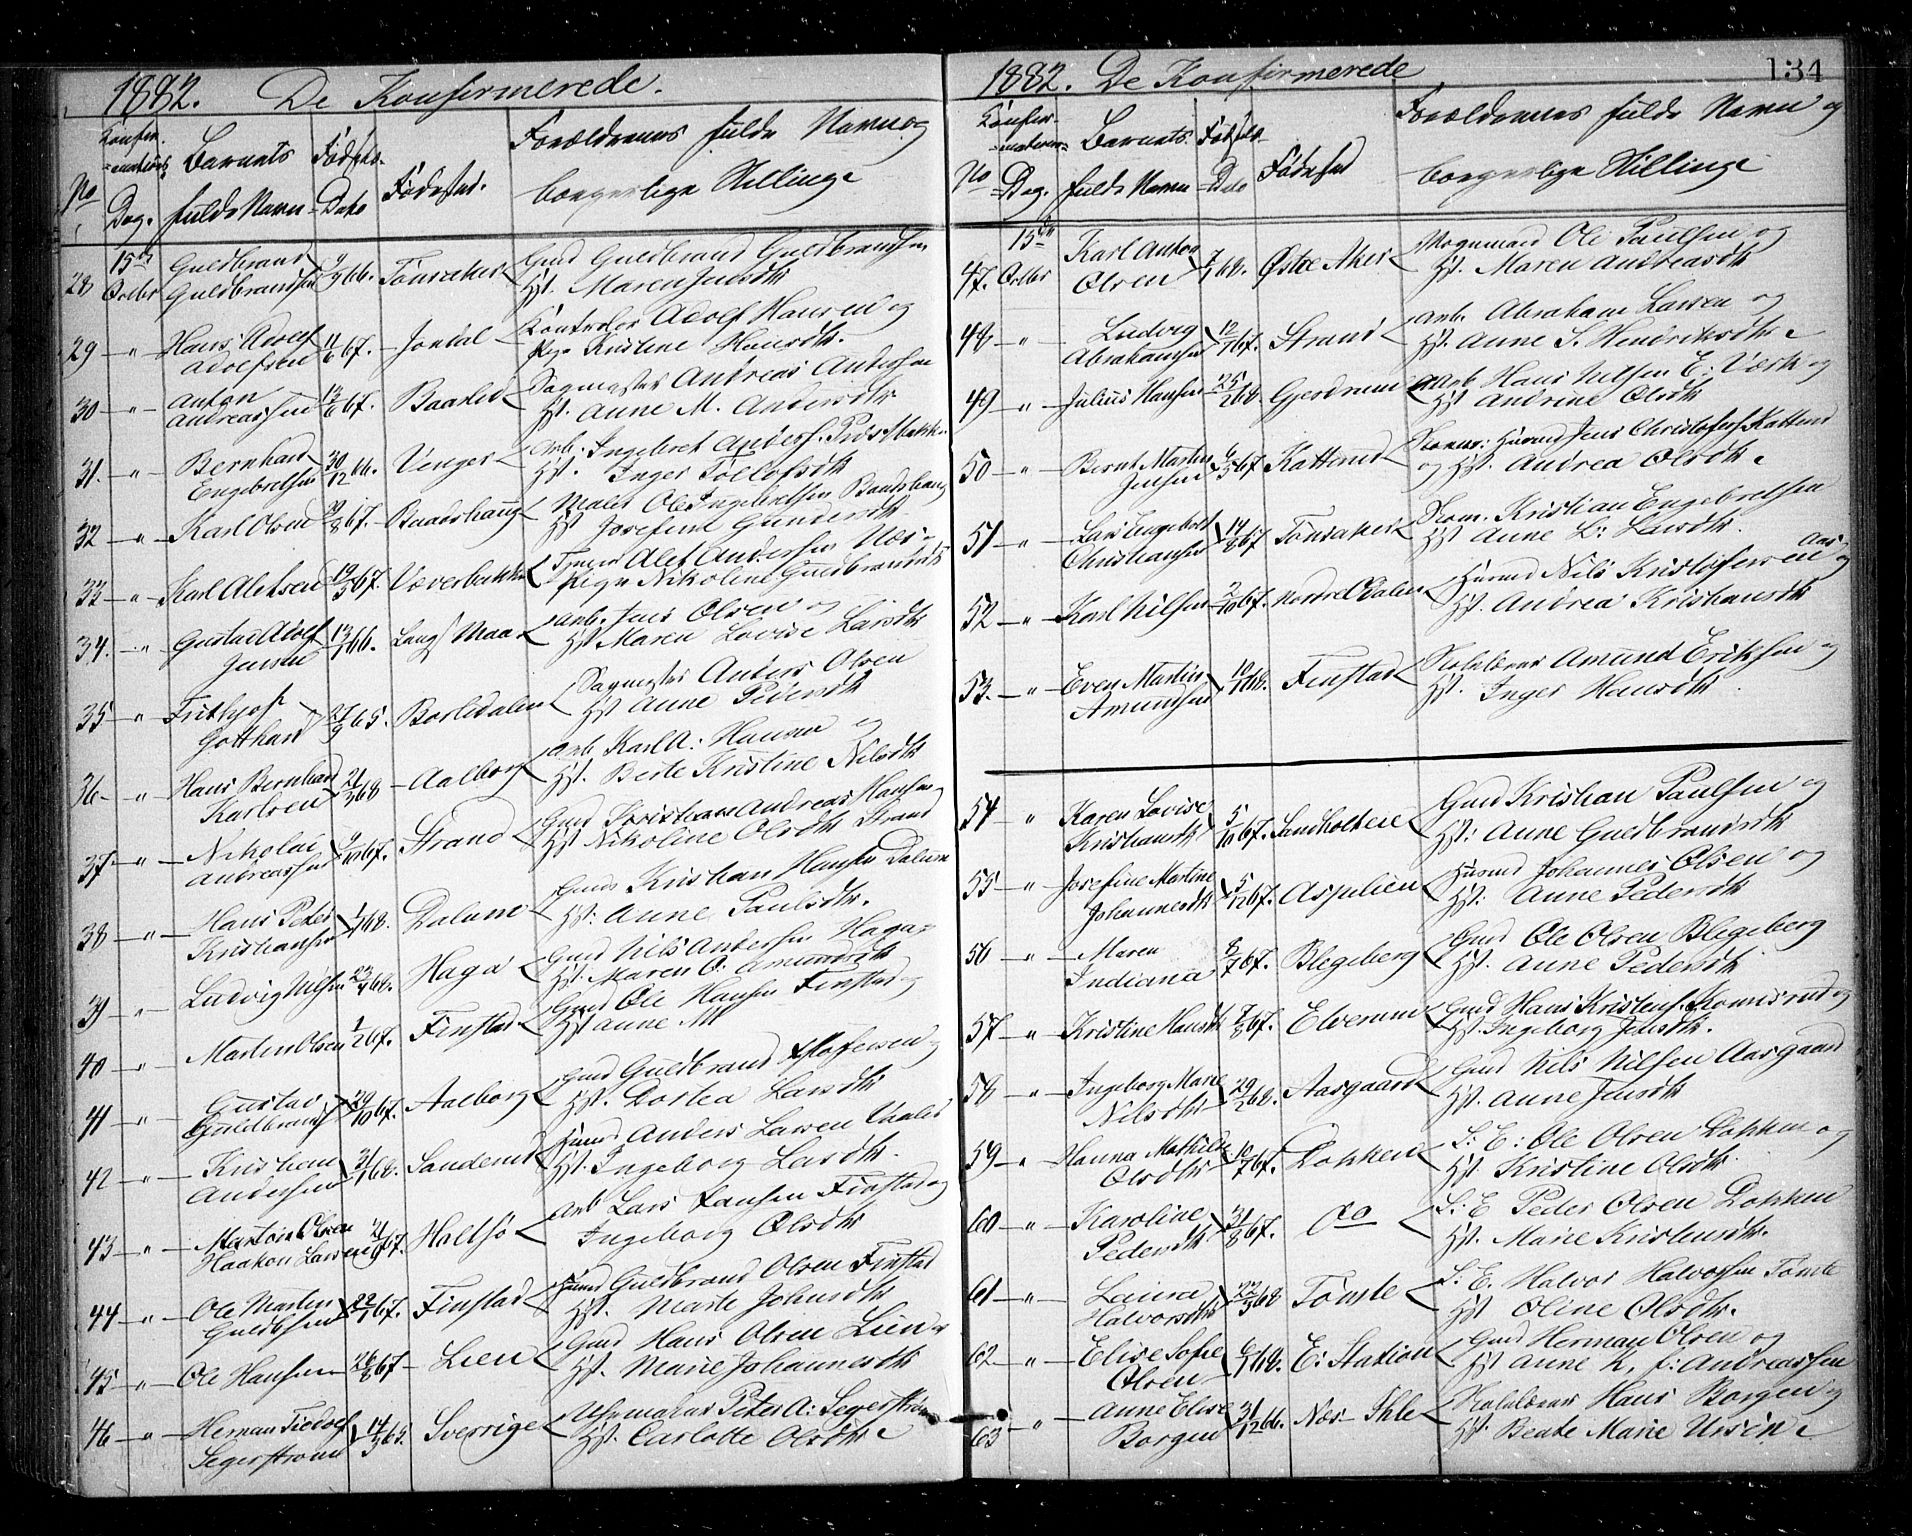 1882. De Konfirmerede.
No
Konfir-
mations
Dag.
Barnets
fulde Navn
Fødsels-
Dato
Fødested.
Forældrenes fulde Navn og
borgerlige Stilling
28 15de Octbr Guldbrand Guldbrandsen 66. Tønsaker Gmd Guldbrand Guldbrandsen
Hst. Maren Jensdtr
29 — " — Hans Adolf Adolfsen 11/6 67. Jondal Adolf Hansen og
Pige Kristine Hansdtr.
30 — " — Anton Andreassen 13/6 67. Baarlid Sagmester Andreas Andersen
Hst. Anne M. Andersdtr
31. — " — Bernhard Engebretsen 30/12 66. Venger Arb. Ingebret Anders.
Hst. Inger Tollefsdtr
32 — " — Karl Olsen 67. Baadshaug Maler Ole Ingebretsen Baadshaug
Hst Josefine Gundersdtr
33 — " — Karl Alefsen 19/5 67. Væverbakken Alef Andersen
Pige Nikoline Guldbrandsdtr
34. — " — Gustav Adolf Jensen 13/7 66. Arb. Jens Olsen og
Hst Maren Lovise Larsdtr
35 — " — Frithjof Gotthard 27/9 65 Borledalen Sagmester Anders Olsen
Hst Anne Pedersdtr
36 — " — Hans Bernhard Karlsen 21/3 68 Aalborg Arb Karl A. Hansen og
Hst. Berte Kristine Nilsdtr
37. — " — Nikolai Andreassen 9/10 67. Strand Gmd Andreas Hansen
Hst Nikoline Olsdtr Strand
38 — " — Hans Peter Kristiansen 68. Dalum Gmd Kristian Hansen Dalum
Hst: Anne Paulsdtr.
39 — " — Ludvig Nilsen 23/4 68. Haga Gmd Nils Andersen Haga
Hst. Maren O. Amundsdtr
40 — " Marten Olsen 1/2 67. Finstad Gmd Ole Hansen Finstad og
Hst Anne M
41 — " — Gustav Guldbrands 29/10 67. Aalborg Gmd Guldbrand Kristofersen
Hst. Dortea Larsdtr
42 — " — Kristian Andersen 31/1 68. Sanderud Husmd Anders Larsen
Hst. Ingeborg Larsdtr.
43 — " — Haakon Larsen 67. Holtsø Arb Lars Hansen Finstad og
Ingeborg Olsdtr
44 — " — Ole Martin Guldbsen 22/7 67. Finstad Husmd Guldbrand Olsen Finstad
Hst. Marte Johnsdtr
45 — " — Ole Hansen 26/8 67 Lien Gmd Hans Olsen Lien
Hst. Marie Johannesdtr
46 — " — Herman Tiodolf Segerstrøm 14/3 68. Sverrige Urmager Peter A: Segerstrøm
Hst. Carlotte Olsdtr
1882. De Konfirmerede 134
No
Konfir-
mations-
Dag.
Barnets
fulde Navn
Fødsels-
Dato
Fødested
Forældrenes fulde Navn og
borgerlige Stilling
47. 15de Octbr Karl Anton Olsen 68. Østre Aker Vognmand Ole Paulsen og
Hst. Maren Andreasdtr
48 — " — Ludvig Abrahamsen 12/7 67. Strand Arb. Abraham Larsen og
Hst. Anne S. Hendriksdtr
49 — " — Julius Hansen 25/2 68 Gjerdrum Arb Hans Nilsen E: Værk og
Hst Andrine Olsdtr
50 — " — Bernt Martin Jensen 6/5 67. Katterud Husmd Jens Christofers. Katterud
og Hst. Andrea Olsdtr
51 — " — Lars Engebret Christiansen 14/8 67 Tønsaker Kristian Engebretsen
Hst Anne L: Larsdtr.
52 — " — Karl Nilsen 2/10 67. Husmd Nils Kristofersen Aas og
Hst. Andrea Kristiansdtr
53. — " — Even Martin Amundsen 10/1 68. Finstad Skolelærer Amund Eriksen og
Hst. Inger Hansdtr
54 " — Karen Lovise Kristiansdtr 5/10 67. Sandholteie Gmd Kristian Paulsen og
Hst: Anne Guldbrandsdtr
55 — " — Josefine Martine Johannesdtr 5/12 67. Aspelien Husmd Johannes Olsen og
Hst: Anne Pedersdtr
56 — " — Maren Indiana 8/7 67. Blegeberg Gmd Ole Olsen Blegeberg
Hst. Anne Pedersdtr
57 — " — Kristine Hansdtr 7/8 67. Elverum Gmd Hans Kristens. Komisrud og
Hst. Ingeborg Jensdtr.
58 — " — Ingeborg Marie Nilsdtr 29/2 68. Aasgaard Gmd Nils Nilsen Aasgaard
Hst. Anne Jensdtr
59 — " — Hanna Mathilde Olsdtr 12/7 67. Dokken S: E: Ole Olsen Dokken og
Hst Kristine Olsdtr.
60 — " — Karoline Pedersdtr 31/8 67. do S. E Peder Olsen Dokken
Hst. Marie Kristensdtr.
61 — " — Laura Halvorsdtr 22/3 68 Tømte S. E. Halvor Halvorsen Tømte
Hst Oline Olsdtr.
62 — " — Elise Sofie Olsen 68. E: Station Gmd Herman Olsen og
Hst Anne K, f: Andreassen
63 — " — Anne Elise Borgen 31/12 66. Næs Skolelærer Hans Borgen og
Hst. Beate Marie Ursin